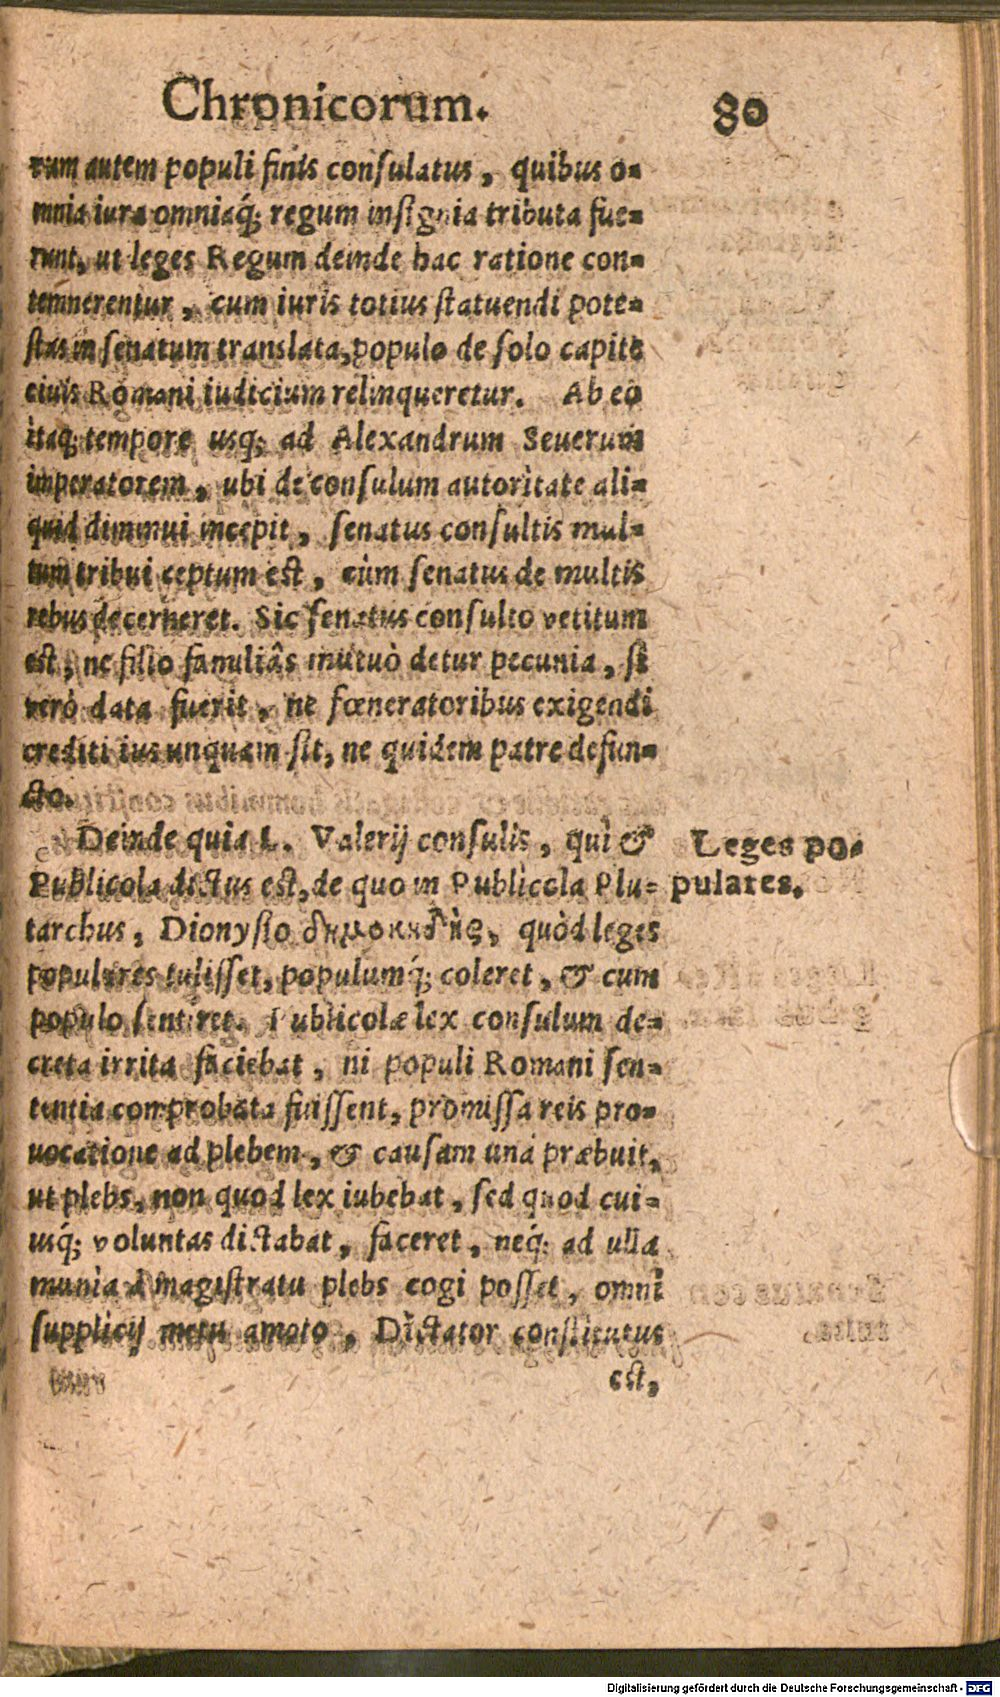 Chronicorum. 80
rum autem populi finis consulatus, quibus o-
mnia iura omniaq́; regum insignia tributa fue-
runt, ut leges Regum deinde hac ratione con-
temnerentur, cum iuris totius statuendi pote-
stas in senatum translata, populo de solo capite
ciuis Romani iudicium relinqueretur. Ab eo
itaq; tempore usq; ad Alexandrum Seuerum
imperatorem, ubi de consulum autoritate ali-
quid diminui incepit, senatus consultis mul-
tum tribui ceptum est, cùm senatus de multis
rebus decerneret. Sic senatus consulto vetitum
est, ne filio familiâs mutuò detur pecunia, si
verò data fuerit, ne fœneratoribus exigendi
crediti ius unquam sit, ne quidem patre defun-
cto.
Deinde quia L. Valerij consulis, qui &
Publicola dictus est, de quo in Publicola Plu-
tarchus, Dionysio δημοκηδὴς, quòd leges
populares tulisset, populumq́; coleret, & cum
populo sentiret. Publicolæ lex consulum de-
creta irrita faciebat, ni populi Romani sen-
tentia comprobata fuissent, promissa reis pro-
uocatione ad plebem, & causam unà præbuit,
ut plebs, non quod lex iubebat, sed quod cui-
usq́; voluntas dictabat, faceret, neq́; ad ulla
munia à magistratu plebs cogi posset, omni
supplicij metu amoto, Dictator constitutus
est,
Leges po-
pulares.
Digitalisierung gefördert durch die Deutsche Forschungsgemeinschaft - DFG